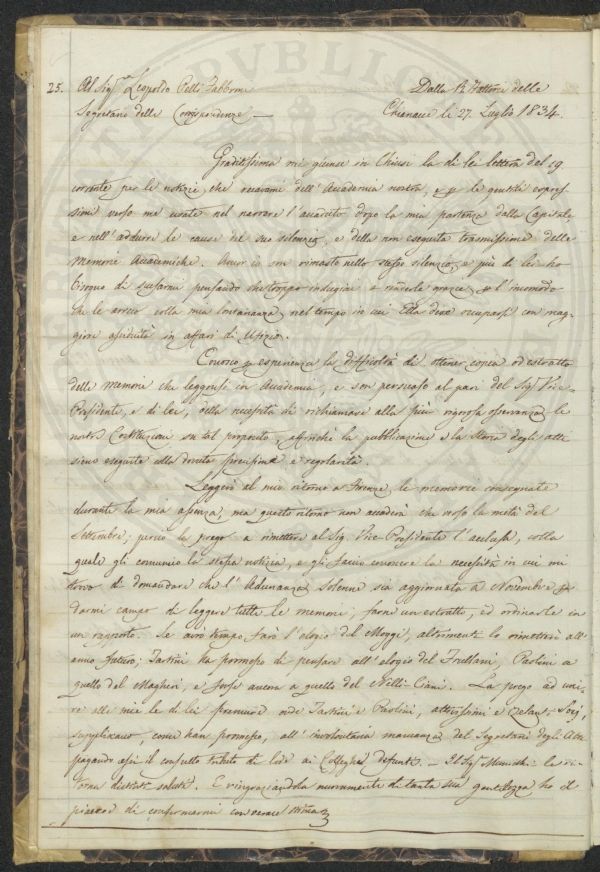 25. Al Sig.re Leopoldo Pelli Fabbroni
Segretario delle Corrispondenze —
Dalla R. Fattoria delle
Chianacce li 27. Luglio 1834.
Graditissima mi giunse in Chiusi la di lei lettera del 19
corrente per le notizie, che recavami dell'Accademia nostra, e p le gentili espres-
sioni verso me usate nel narrare l'accaduto dopo la mia partenza dalla Capitale
e nell'addurre le cause del suo silenzio, e della non eseguita trasmissione delle
Memorie Accademiche. Ancor io son rimasto nello stesso silenzio, e più di lei ho
bisogno di scusarmi pensando che troppo indugiai a renderle grazie p l'incomodo
che le arreco colla mia lontananza, nel tempo in cui Ella deve occuparsi con mag-
giore assiduità in affari di Ufizio.
Conosco p esperienza la difficoltà di ottener copia od estratto
delle memorie che leggonsi in Accademia, e son persuaso al pari del Sig. Vice-
Presidente, e di lei, della necessità di richiamare alla più rigorosa osservanza le
nostre Costituzioni su tal proposito, affinché la pubblicazione e la storia degli atti
sieno eseguite colla dovuta precisione e regolarità.
Leggerò al mio ritorno a Firenze le memorie consegnate
durante la mia assenza, ma questo ritorno non accaderà che verso la metà del
Settembre; perciò la prego a rimettere al Sig. Vice-Presidente l'acclusa, colla
quale gli comunico la stessa notizia, e gli faccio conoscere la necessità in cui mi
trovo di domandare che l'Adunanza solenne sia aggiornata a Novembre p
darmi campo di leggere tutte le memorie, farne un estratto, ed ordinarle in
un rapporto. Se avrò tempo farò l'elogio del Moggi, altrimenti lo rimetterò all'
anno futuro; Tartini ha promesso di pensare all'elogio del Frullani, Paolini a
quello del Magheri, e forse ancora a quello del Nelli-Ciani. La prego ad uni-
re alle mie le di lei premure onde Tartini e Paolini, attivissimi e zelanti Socj,
suppliscano, come han promesso, all'involontaria mancanza del Segretario degli Atti
pagando così il consueto tributo di lode ai Colleghi defunti. — Il Sig. le ri-
torna distinti saluti. E ringraziandola nuovamente di tanta sua gentilezza ho il
piacere di confermarmi con verace stima